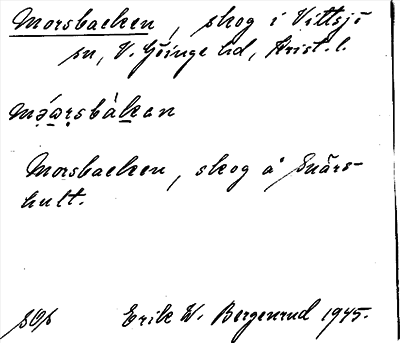 Morsbacken, skog i Vittsjö
sn, V. Göinge hd, Krist. l.
mo̤ɷrsbàkan
Morsbacken, skog å Snärs-
hult.
Erik W. Bergenrud 1945.